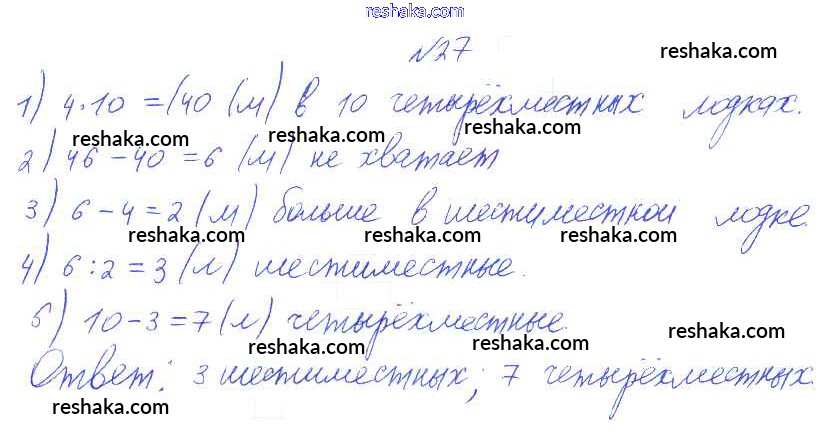 reshaka.com
№27
reshaka.com
1) 4·10 =(40 (м) в 10 четырёхместных лодках.
reshaka.com reshaka.com reshaka.com
2) 46-40 =6 (м) не хватает
reshaka.com
3) 6-4=2 (м) больше в шестиместной лодке.
reshaka.com reshaka.com reshaka.com
4) 6:2=3 (л) шестиместные.
reshaka.com reshaka.com
5) 10-3=7 (л) четырёхместные.
reshaka.com reshaka.com reshaka.com
Ответ: 3 шестиместных; 7 четырёхместных.
reshaka.com reshaka.com reshaka.com